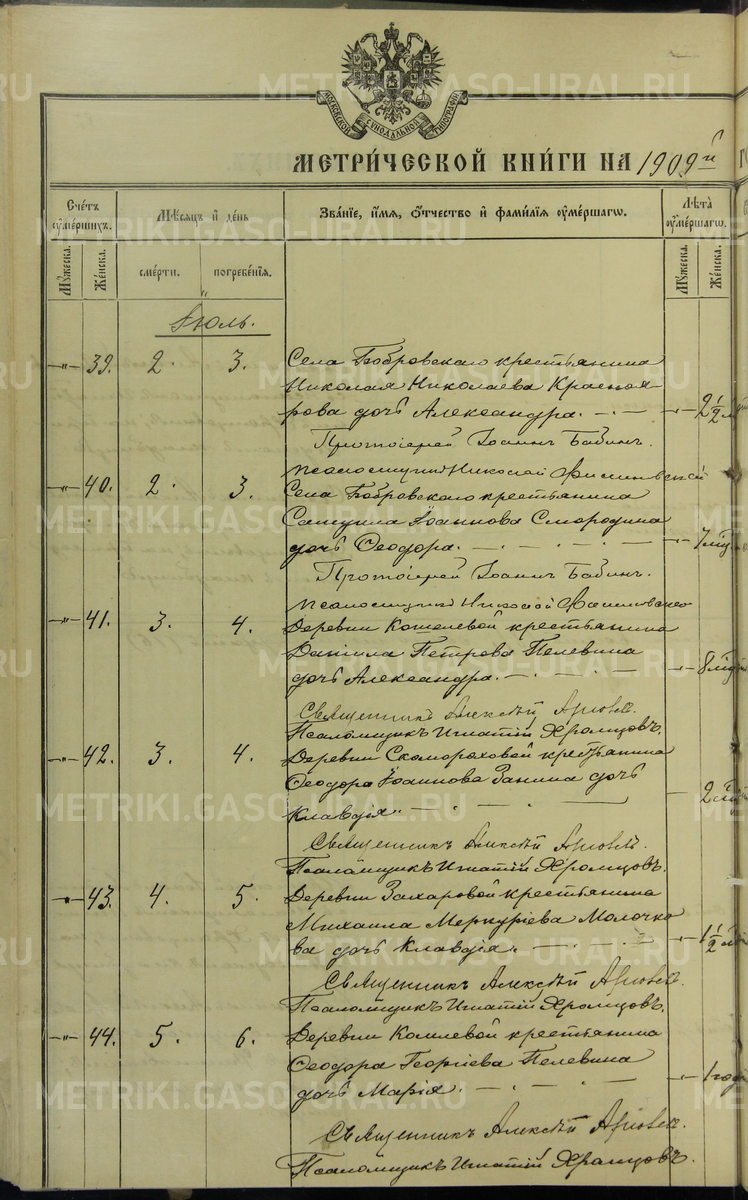 МОСКОВСКОЙ СѴНОДАЛЬНОЙ ТИПОГРАФІИ
МЕТРИ́ЧЕСКОЙ КНИ́ГИ НА 1909й
Сче́тъ ᲂу҆ме́ршихъ.
Мѣ́сяцъ и҆ де́нь
Зва́нїе, и҆́мя, ѻ҆́тчество и҆ фами́лїя ᲂу҆ме́ршагѡ.
Лѣ́та ᲂу҆ме́ршагѡ.
Мꙋ́жеска.
Же́нска.
сме́рти.
погребе́нїѧ.
Мꙋ́жеска.
Же́нска.
Іюль.
-"- 39. 2. 3. Села Бобровскаго крестьянина
Николая Николаева Краснояр-
рова дочь Александра. - " - 2 1/2
Протоіерей Іоаннъ Бабинъ.
Псаломщикъ Николай
-"- 40. 2. 3. Села Бобровскаго крестьянина
Самуила Іоаннова Смородина
дочь Ѳеодора. - " - 7
Протоіерей Іоаннъ Бабинъ.
Псаломщикъ Николай
-"- 41. 3. 4. Деревни Кошелевой крестьянина
Даніила Петрова Пелевина
дочь Александра. - " - 8
Священникъ Алексѣй
Псаломщикъ Игнатій Хромцовъ.
-"- 42. 3. 4. Деревни Скомороховой крестьянина
Ѳеодора Іоаннова Занина дочь
Клавдія. - 2
Священникъ Алексѣй
Псаломщикъ Игнатій Хромцовъ.
-"- 43. 4. 5. Деревни Захаровой крестьянина
Михаила Меркуріева Молочко
ва дочь Клавдія. - " - 1 1/2
Священникъ Алексѣй
Псаломщикъ Игнатій Хромцовъ.
-"- 44. 5. 6. Деревни Комлевой крестьянина
Ѳеодора Георгіева Пелевина
дочь Марія. - " - 1 годъ
Священникъ Алексѣй
Псаломщикъ Игнатій Хромцовъ.
METRIKI.GASO-URAL.RU